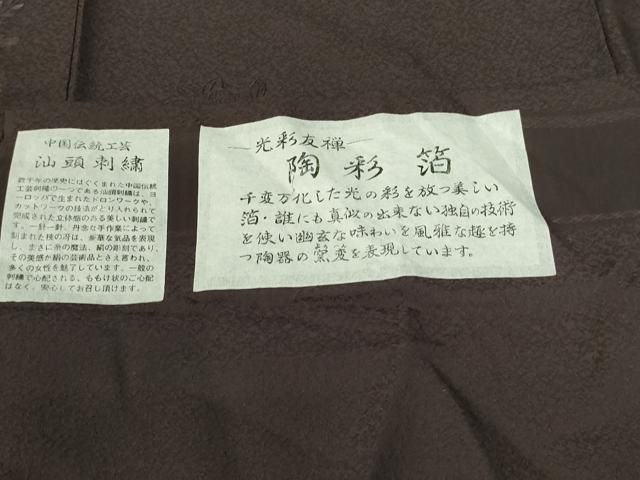 中国伝統工芸
汕頭刺繍
数千年の歴史にはぐくまれた中国伝統
工芸刺繍の一つである汕頭刺繍は、ヨー
ロッパで生まれたドロンワークや、
カットワークの技法がとり入れられて
完成された立体感のある美しい刺繍で
す。一針一針、丹念な手作業によって
刻まれた技の冴は、豪華な気品を表現
し、まさに糸の魔法、絹の彫刻であり、
その美感が絹の芸術品とさえ言われ、
多くの女性を魅了しています。一般の
刺繍で心配される、ももけ状のご心配
はなく、安心してお召し頂けます。
光彩友禅
陶彩箔
千変万化した光の彩を放つ美しい
箔・誰にも真似の出来ない独自の技術
を使い幽玄な味わいを風雅な趣を持
つ陶器の窯変を表現しています。